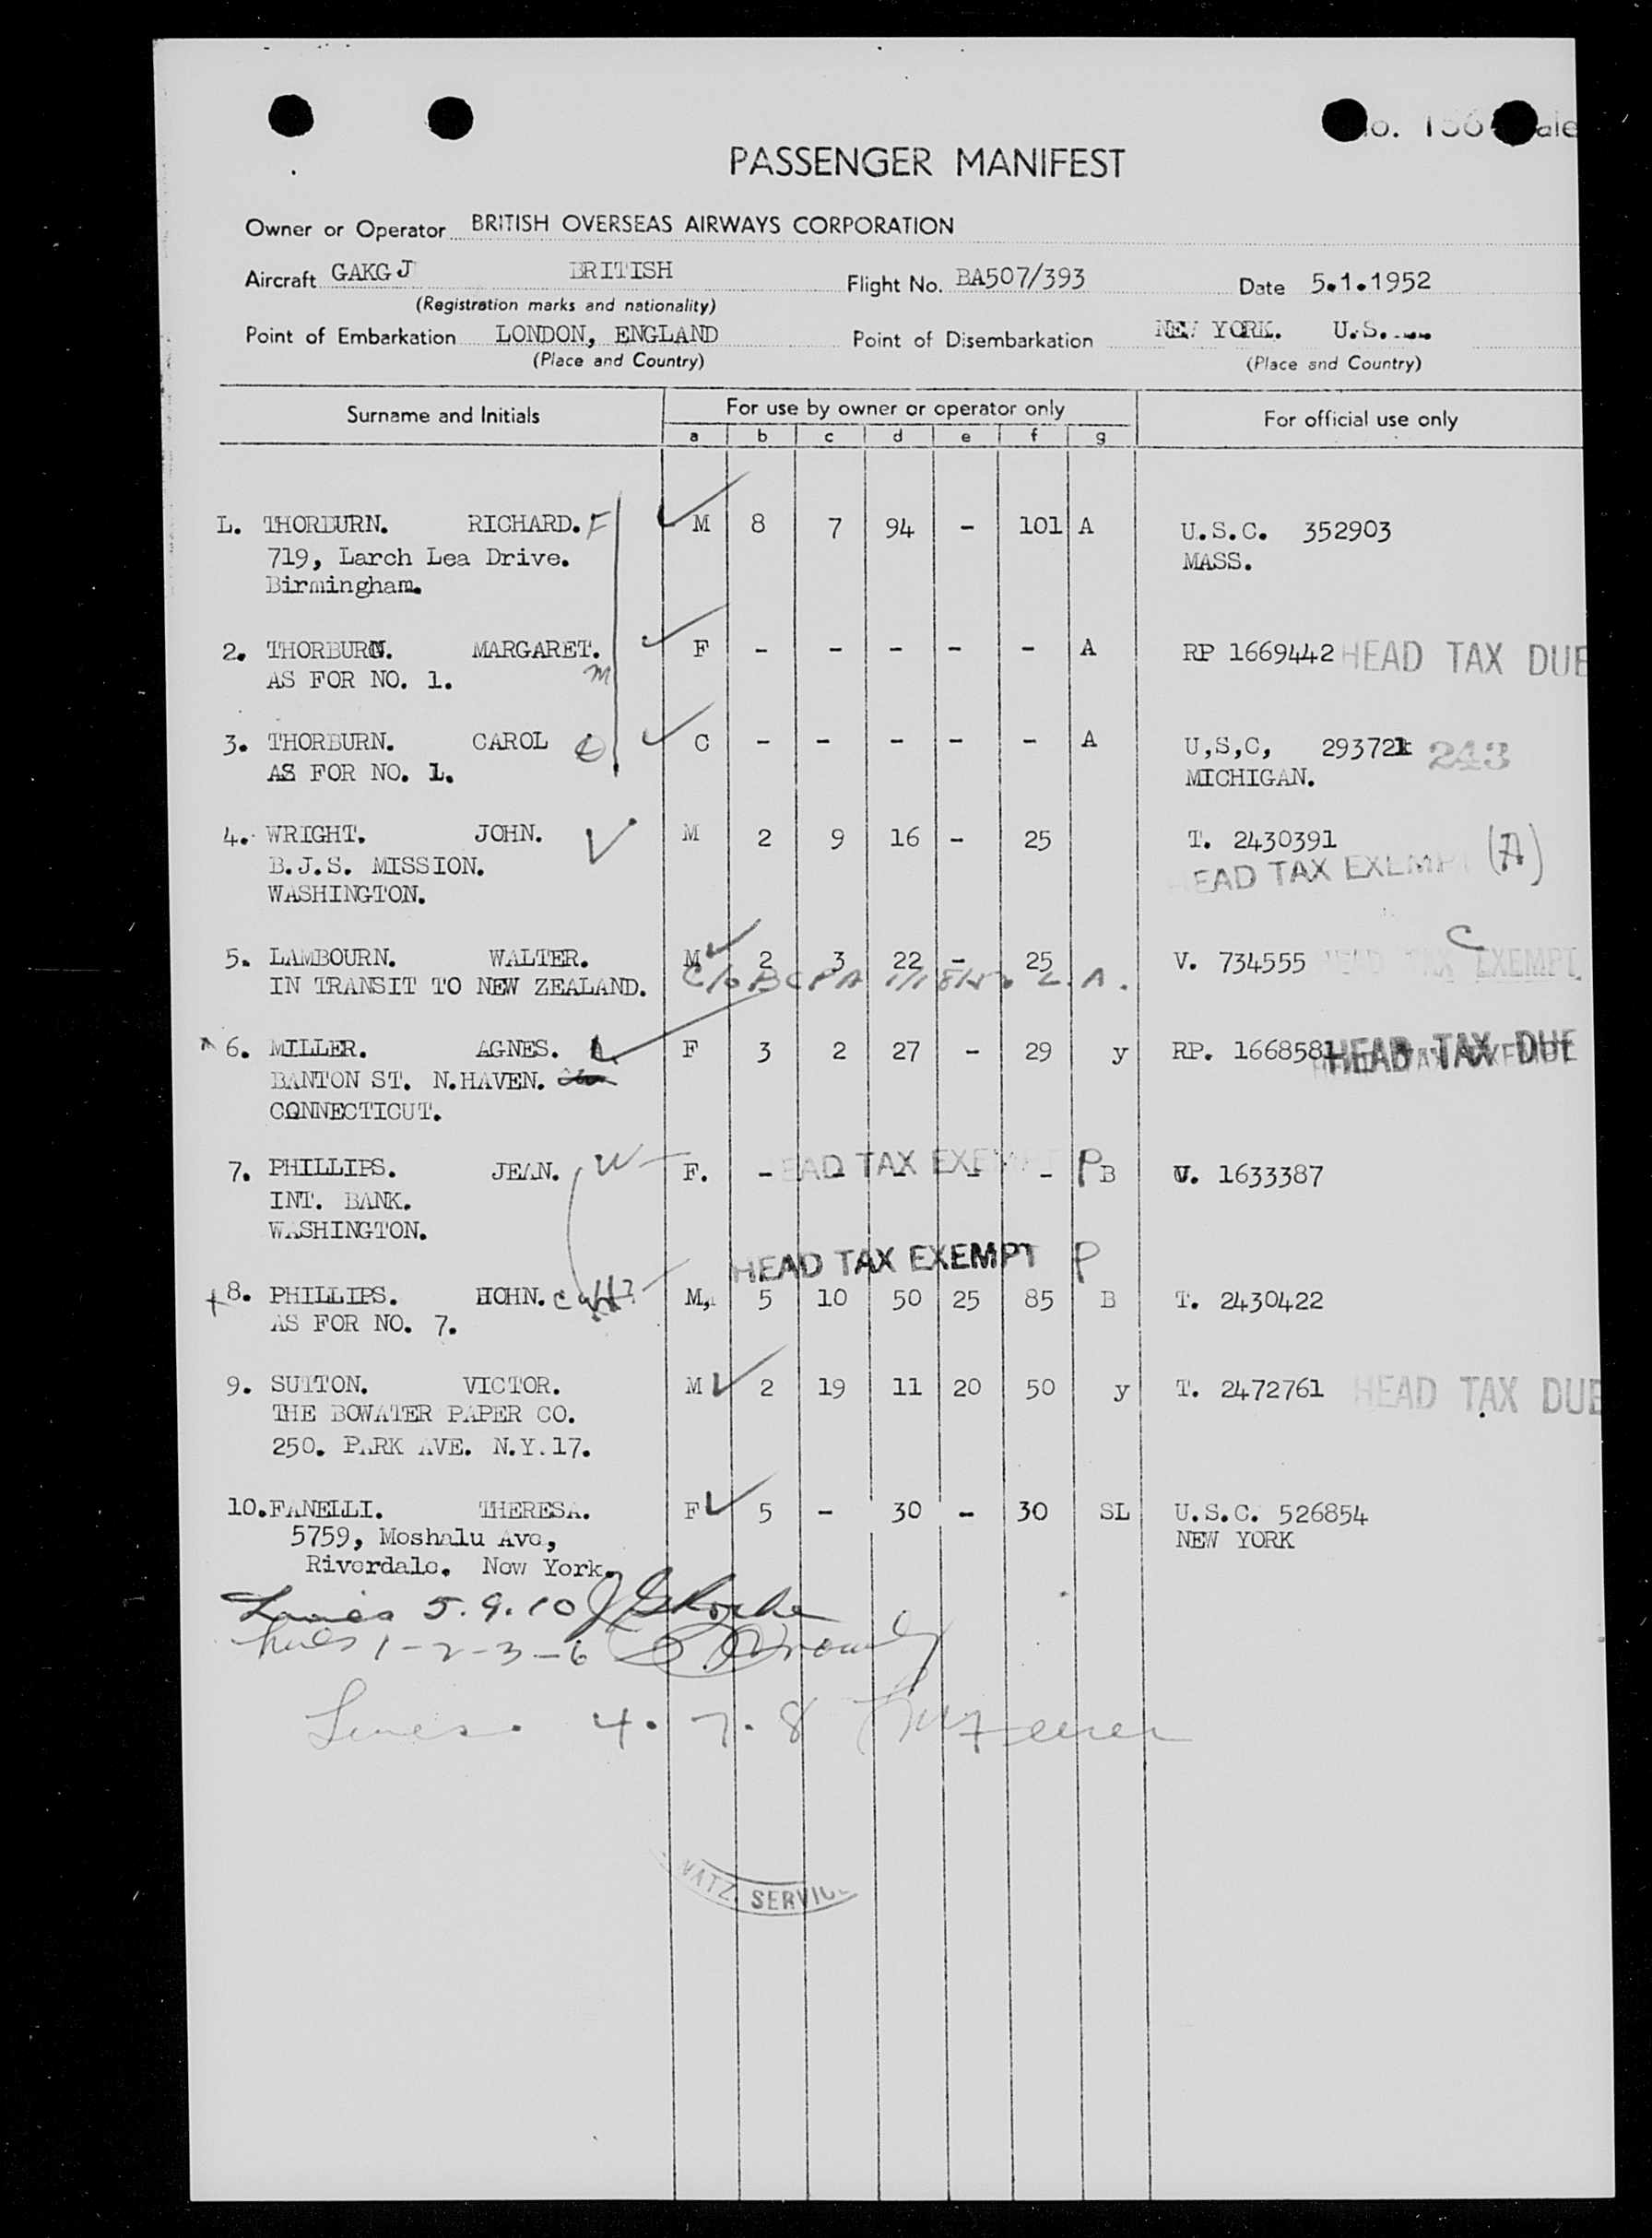 PASSENGER MANIFEST
Owner or Operator BRITISH OVERSEAS AIRWAYS CORPORATION
Aircraft GAKGJ BRITISH Flight No. BA507/393 Date 5.1.1952
(Registration marks and nationality)
Point of Embarkation LONDON, ENGLAND Point of Disembarkation NEW YORK. U.S.
(Place and Country) (Place and Country)
Surname and Initials For use by owner or operator only For official use only
a b c d e f g
L. THORBURN. RICHARD. F M 8 7 94 - 101 A U.S.C. 352903
719, Larch Lea Drive. MASS.
Birmingham.
2. THORBURN. MARGARET. F - - - - - A RP 1669442 HEAD TAX DUE
AS FOR NO. 1. M
3. THORBURN. CAROL C - - - - - A U,S,C, 293721 243
AS FOR NO. 1. MICHIGAN.
4. WRIGHT. JOHN. M 2 9 16 - 25 T. 2430391
B.J.S. MISSION. EAD TAX EXEMP (A)
WASHINGTON.
5. LAMBOURN. WALTER. M 2 3 22 - 25 V. 734555 HEAD TAX EXEMPT C
IN TRANSIT TO NEW ZEALAND. C/o BCPA L.A.
6. MILLER. AGNES. F 3 2 27 - 29 y RP. 1668581 HEAD TAX DUE
BANTON ST. N.HAVEN.
CONNECTICUT.
7. PHILLIPS. JEAN. W F. - - - - - P B V. 1633387
EAD TAX EXE
INT. BANK.
WASHINGTON.
HEAD TAX EXEMPT P
8. PHILLIPS. HOHN. M, 5 10 50 25 85 B T. 2430422
AS FOR NO. 7.
9. SUTTON. VICTOR. M 2 19 11 20 50 y T. 2472761 HEAD TAX DUE
THE BOWATER PAPER CO.
250. PARK AVE. N.Y.17.
10. FANELLI. THERESA. F 5 - 30 - 30 SL U.S.C. 526854
5759, Moshalu Ave, NEW YORK
Riverdale. New York.
5.9.10
1-2-3-6
Lines. 4. 7. 8
NATZ. SERVIC